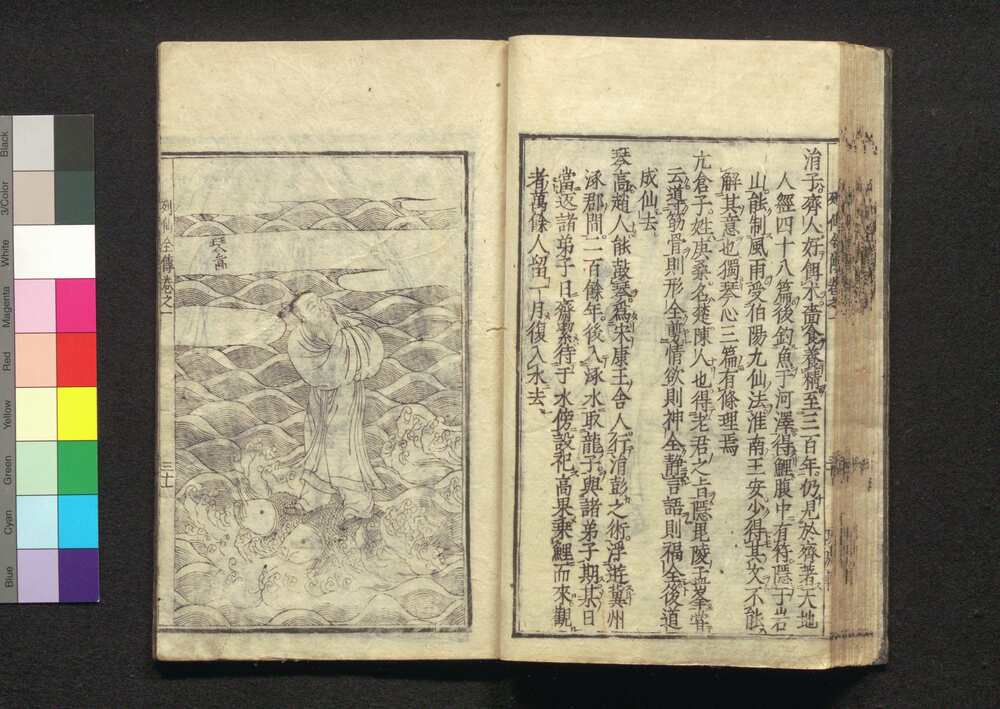 涓子齊人好餌朮嗇食養精至三百年仍見於齊著天地
人經四十八篇後釣魚于河澤得鯉腹中有符隱于岩
山能制風雨受伯陽九仙法淮南王安少得其文不能
解其意也獨琴心三篇有條理焉
亢倉子姓庚桑名楚陳人也得老君之旨隱毘陵孟峯嘗
云導筋骨則形全剪情欲則神全靜言語則福全後道
成仙去
琴高趙人能鼓琴爲宋康王舍人行涓彭之術浮遊冀州
涿郡間二百餘年後入涿水取龍子與諸弟子期某日
當返諸弟子日齋潔待于水傍設祀高果乘鯉而來觀
者萬餘人留一月復入水去
琴高
列仙全傳卷之一
三十
Black
3/Color
White
Magenta
Red
Yellow
Green
Cyan
Blue